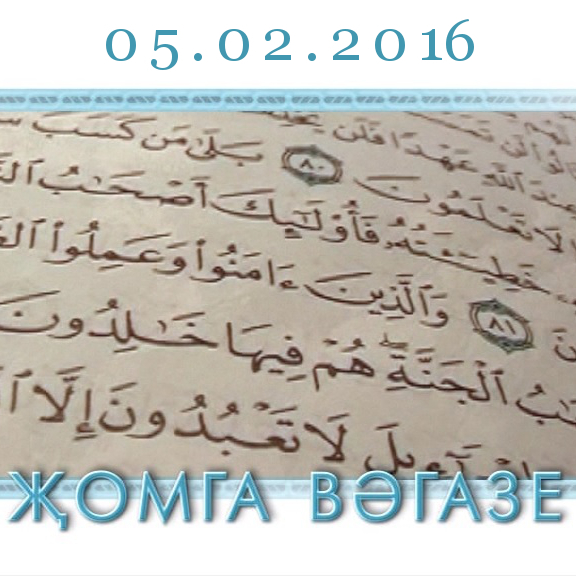 05.02.2016
عِندَ ٱللَّهِ عَهْدًا فَلَن
لَا تَعْلَمُونَ ٨٠ بَلَىٰ مَن كَسَبَ
خَطِيٓـَٔتُهُۥ فَأُو۟لَـٰٓئِكَ أَصْحَـٰبُ
٨١ وَٱلَّذِينَ ءَامَنُوا۟ وَعَمِلُوا۟
ٱلْجَنَّةِ هُمْ فِيهَا خَـٰلِدُونَ
لَا تَعْبُدُونَ إِلَّا
ҖОМГА ВӘГАЗЕ